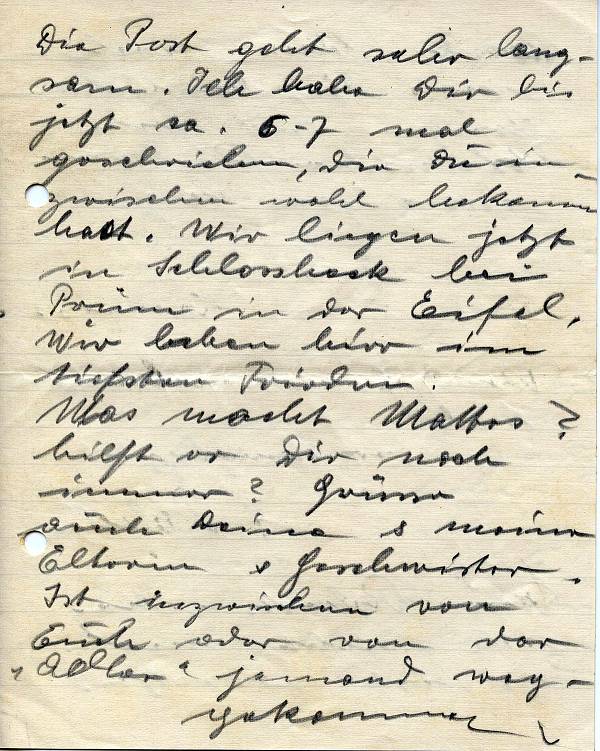 Die Post geht sehr lang-
sam. Ich habe Dir bis
jetzt ca. 6-7 mal
geschrieben, die Du in-
zwischen wohl bekommen
hast. Wir liegen jetzt
in Schlossheck bei
Prüm in der Eifel,
Wir leben hier im
tiefsten Frieden.
Was macht Mattes?
hilft er Dir noch
immer? Grüsse
auch Deine & meine
Eltern & Geschwister.
Ist inzwischen von
Euch oder von der
„Adler“ jemand weg-
gekommen